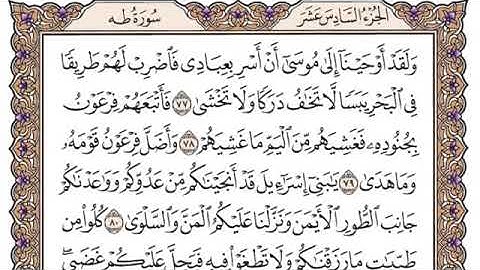 الجزء السادس عشر سورة طه
وَلَقَدْ أَوْحَيْنَآ إِلَىٰ مُوسَىٰٓ أَنْ أَسْرِ بِعِبَادِى فَٱضْرِبْ لَهُمْ طَرِيقًا
فِى ٱلْبَحْرِ يَبَسًا لَّا تَخَٰفُ دَرَكًا وَلَا تَخْشَىٰ ٧٧ فَأَتْبَعَهُمْ فِرْعَوْنُ
بِجُنُودِهِۦ فَغَشِيَهُم مِّنَ ٱلْيَمِّ مَا غَشِيَهُمْ ٧٨ وَأَضَلَّ فِرْعَوْنُ قَوْمَهُۥ
وَمَا هَدَىٰ ٧٩ يَٰبَنِىٓ إِسْرَٰٓءِيلَ قَدْ أَنجَيْنَٰكُم مِّنْ عَدُوِّكُمْ وَوَٰعَدْنَٰكُمْ
جَانِبَ ٱلطُّورِ ٱلْأَيْمَنَ وَنَزَّلْنَا عَلَيْكُمُ ٱلْمَنَّ وَٱلسَّلْوَىٰ ٨٠ كُلُوا۟ مِن
طَيِّبَٰتِ مَا رَزَقْنَٰكُمْ وَلَا تَطْغَوْا۟ فِيهِ فَيَحِلَّ عَلَيْكُمْ غَضَبِى